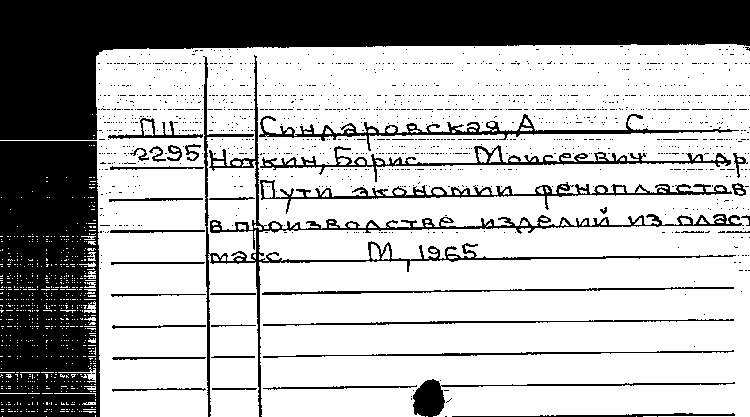 П11 Синдаровская, А С.
2295 Ноткин, Борис Моисеевич и др
Пути экономии фенопластов
в производстве изделий из пласт
масс. М, 1965.